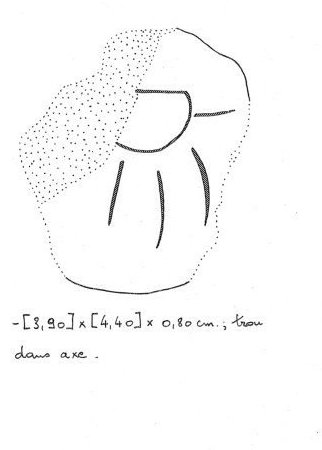 - [3,90] x [4,40] x 0,80 cm. ; trou
dans axe .